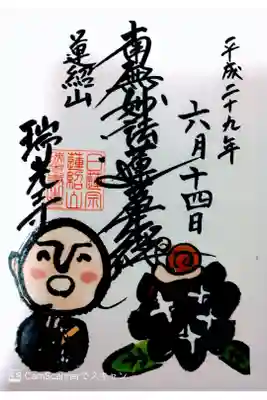 平成二十九年
六月十四日
南無妙法蓮華経
蓮紹山
瑞光寺
日蓮宗
蓮紹山
CS CamScannerでスキャン